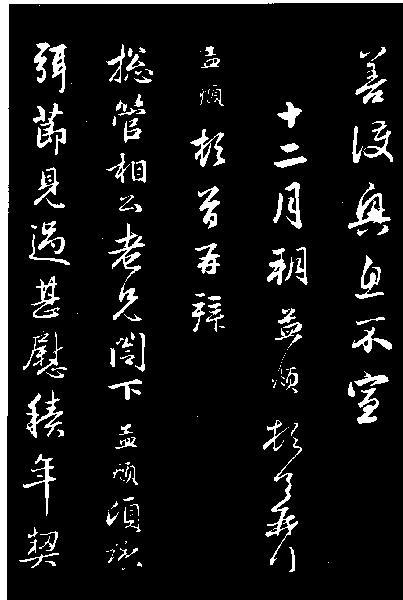 善護興息不宣
十二月朔孟頫頓首再拜
孟頫頓首再拜
總管相公老兄閤下孟頫頃承
弭節見過甚慰積年契